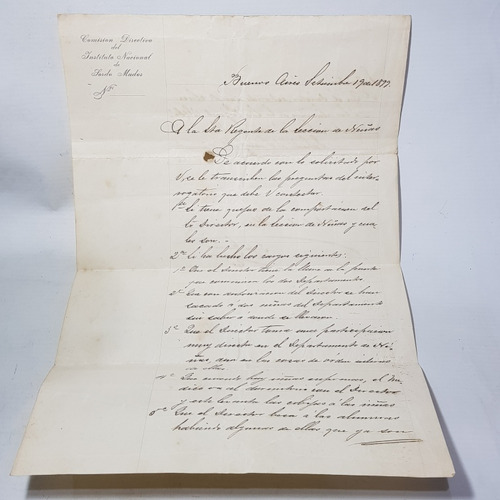 Comision Directiva
del
Instituto Nacional
de
Sordo Mudos
Nº
Buenos Aires Setiembre 19 de 1892.
A la Sta Regente de la Seccion de Niñas
De acuerdo con lo solicitado por
V. se le transcriben las preguntas del inter-
rogatorio que debe V contestar.
1º Se tiene quejas de la comportacion del
Director, en la Seccion de Niñas y cua
les son.
2º Se ha hecho los cargos siguientes:
1º Que el Director tiene la llave de la puerta
que comunica los dos Departamentos
2º Que con autorizacion del Director se han
sacado á dos niñas del Departamento
sin saber á donde se llevaron.
3º Que el Director toma una participacion
muy directa en el Departamento de Ni-
ñas, aun en las cosas de orden interno
de ellas
4º Que cuando hay niñas enfermas, el Mé-
dico va al dormitorio con el Director
y este levanta las cobijas á las niñas
5º Que el Director besa á las alumnas
habiendo algunas de ellas que ya son